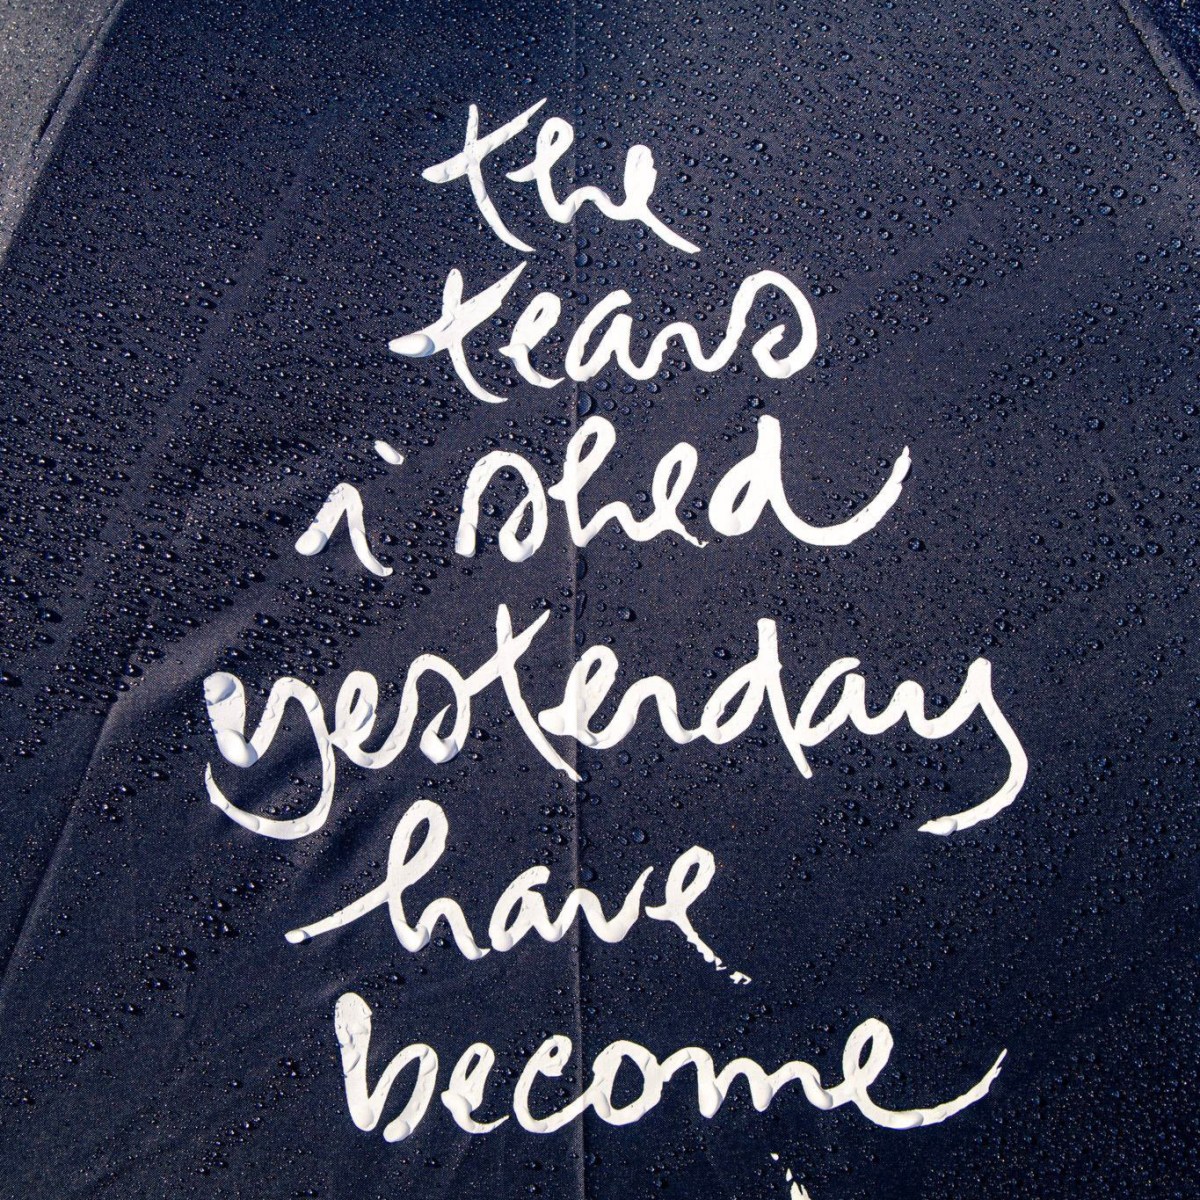 the
tears
i shed
yesterday
have
become